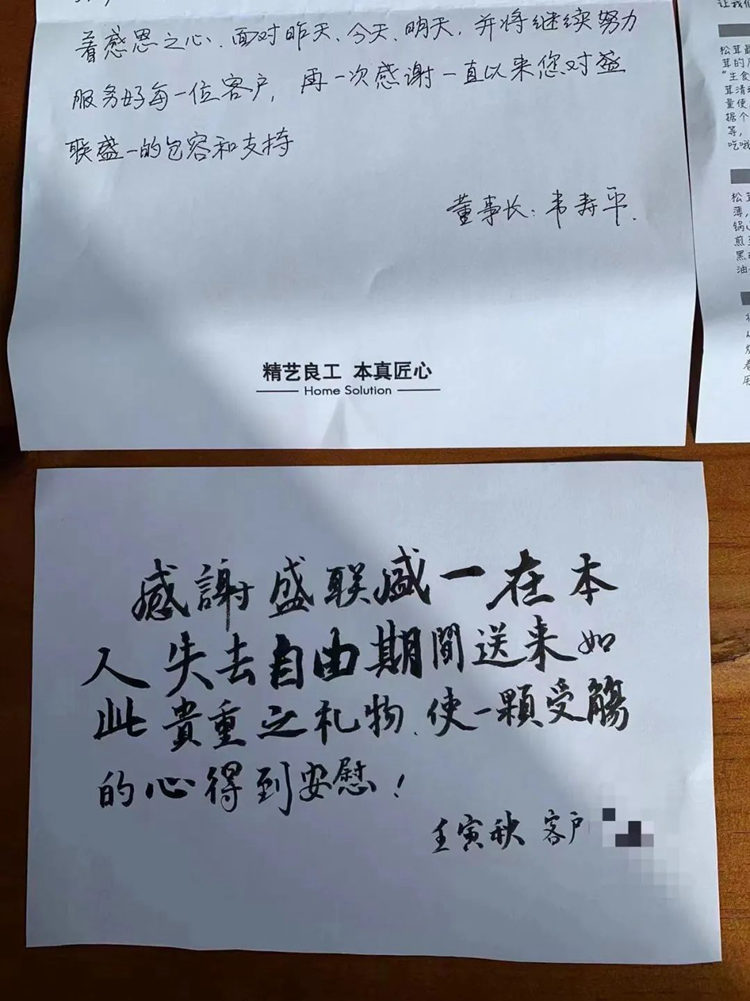 着感恩之心、面对昨天、今天、明天、并将继续努力
服务好每一位客户，再一次感谢一直以来您对盛
联盛一的包容和支持
董事长：韦寿平.
精艺良工 本真匠心
Home Solution
感謝盛联盛一在本
人失去自由期間送来如
此貴重之礼物、使一顆受觴
的心得到安慰！
壬寅秋 客户
让我们
松茸
茸的
"主食
茸清
量使
据个
等，
吃哦
松茸
薄，
锅
煎
黑
油